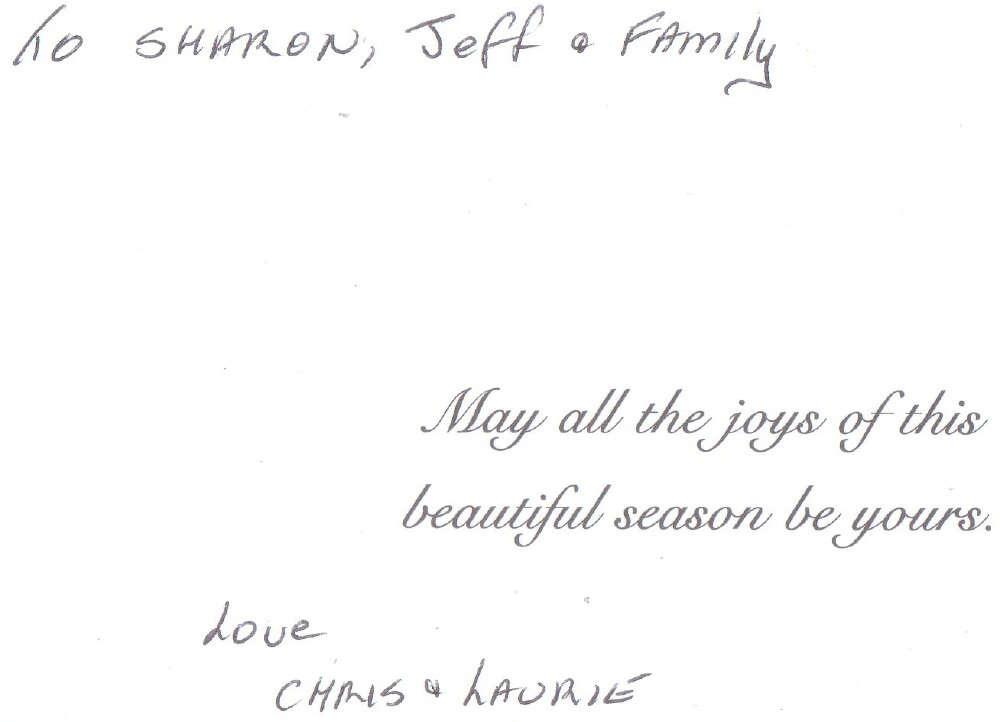 To SHARON, Jeff & FAmily
May all the joys of this
beautiful season be yours.
Love
CHRIS & LAURIE